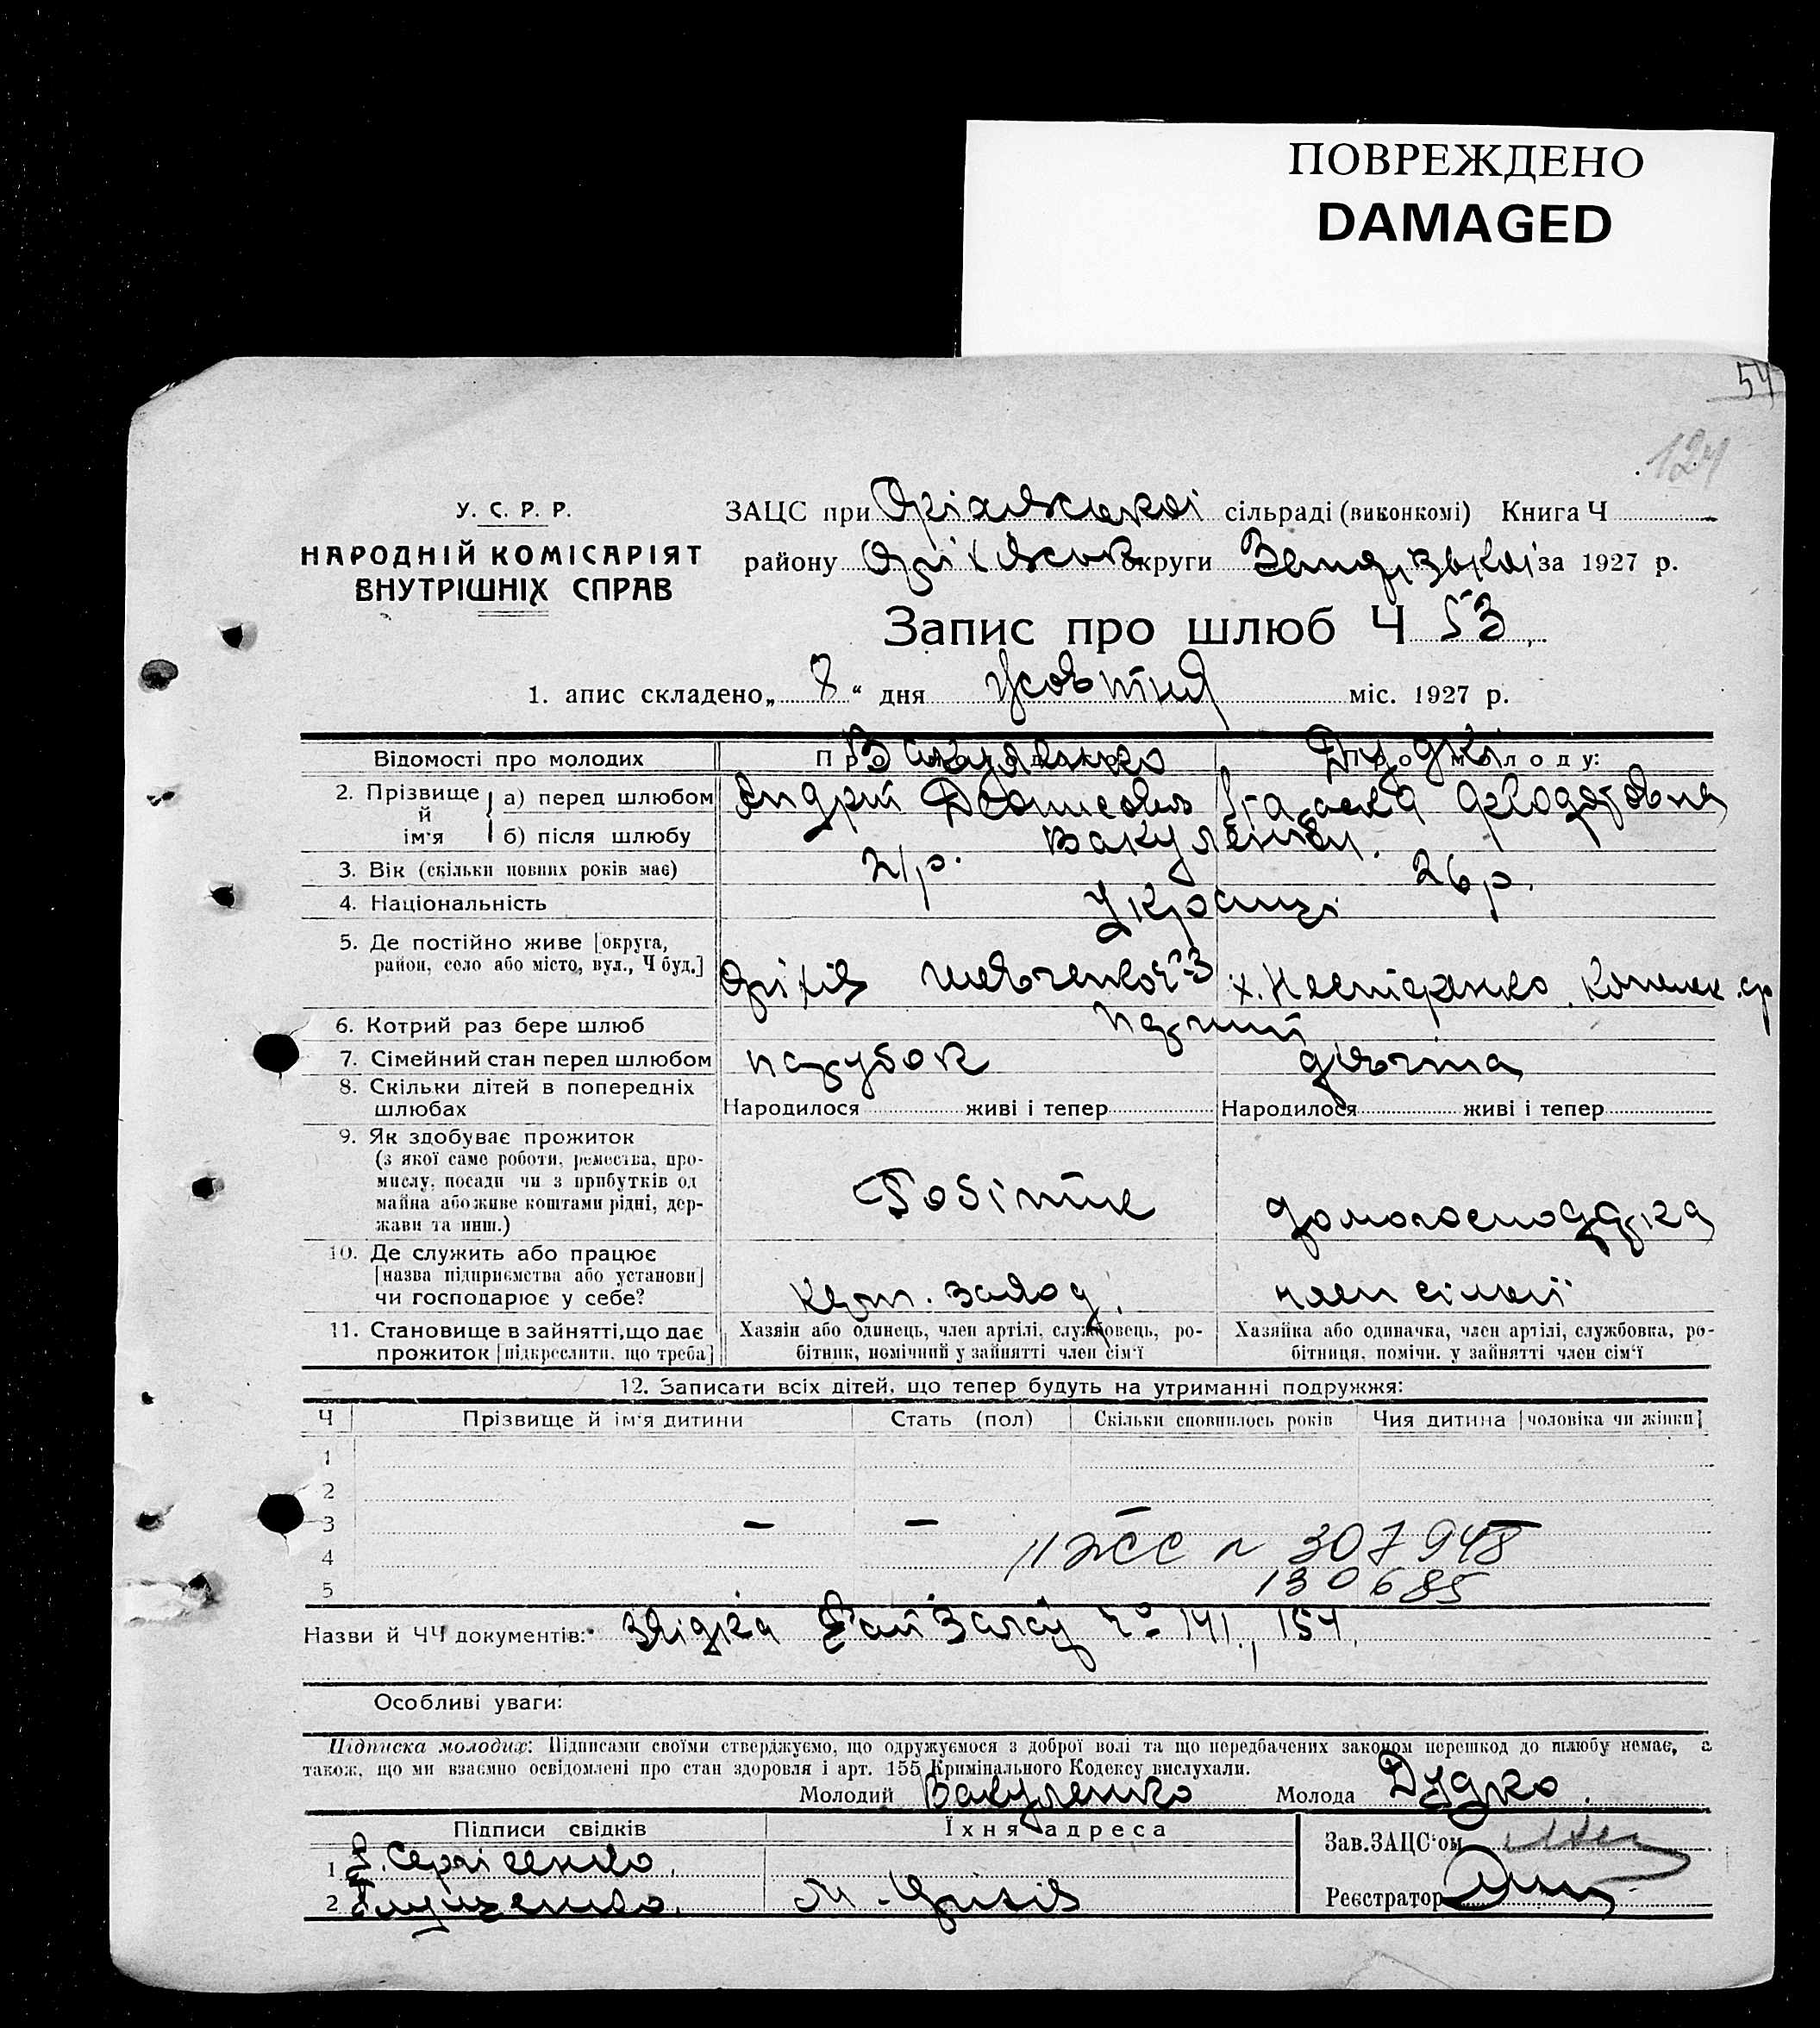 ПОВРЕЖДЕНО
DAMAGED
54
124
У. С. Р. Р.
НАРОДНІЙ КОМІСАРІЯТ
ВНУТРІШНІХ СПРАВ
ЗАЦС при Оріхівській сільраді (виконкомі) Книга Ч
району Оріхівськ округи Запорізької за 1927 р.
Запис про шлюб Ч 53
1. апис складено „ 8 “ дня жовтня міс. 1927 р.
Відомості про молодих
Вакуленко
Дудко
2. Прізвище й ім'я
а) перед шлюбом
Андрій Денисович
б) після шлюбу
Вакуленки.
3. Вік (скільки повних років має)
21р.
26р.
4. Національність
Українці
5. Де постійно живе [округа, район, село або місто, вул., Ч буд.]
Оріхів Шевченко
х. Нестеренко
6. Котрий раз бере шлюб
перший
7. Сімейний стан перед шлюбом
парубок
дівчина
8. Скільки дітей в попередніх шлюбах
Народилося живі і тепер
Народилося живі і тепер
9. Як здобуває прожиток
(з якої саме роботи, ремества, промислу, посади чи з прибутків од майна або живе коштами рідні, держави та инш.)
домогосподарка
10. Де служить або працює
[назва підприємства або установи]
чи господарює у себе?
завод.
член сімьї
11. Становище в зайнятті, що дає прожиток [підкреслити, що треба]
Хазяїн або одинець, член артілі, службовець, робітник, помічний у зайнятті член сім'ї
Хазяйка або одиначка, член артілі, службовка, робітниця, помічн. у зайнятті член сім'ї
12. Записати всіх дітей, що тепер будуть на утриманні подружжя:
Ч Прізвище й ім'я дитини Стать (пол) Скільки сповнилось років Чия дитина [чоловіка чи жінки]
1
2
3
4
5
307948
130685
Назви й ЧЧ документів: 141, 154
Особливі уваги:
Підписка молодих: Підписами своїми стверджуємо, що одружуємося з доброї волі та що передбачених законом перешкод до шлюбу немає, а
також, що ми взаємно освідомлені про стан здоровля і арт. 155 Кримінального Кодексу вислухали.
Молодий Вакуленко Молода Дудко.
Підписи свідків Їхня адреса
1 Сергієнко
2 м. Оріхів
Зав.ЗАЦС'ом
Реєстратор